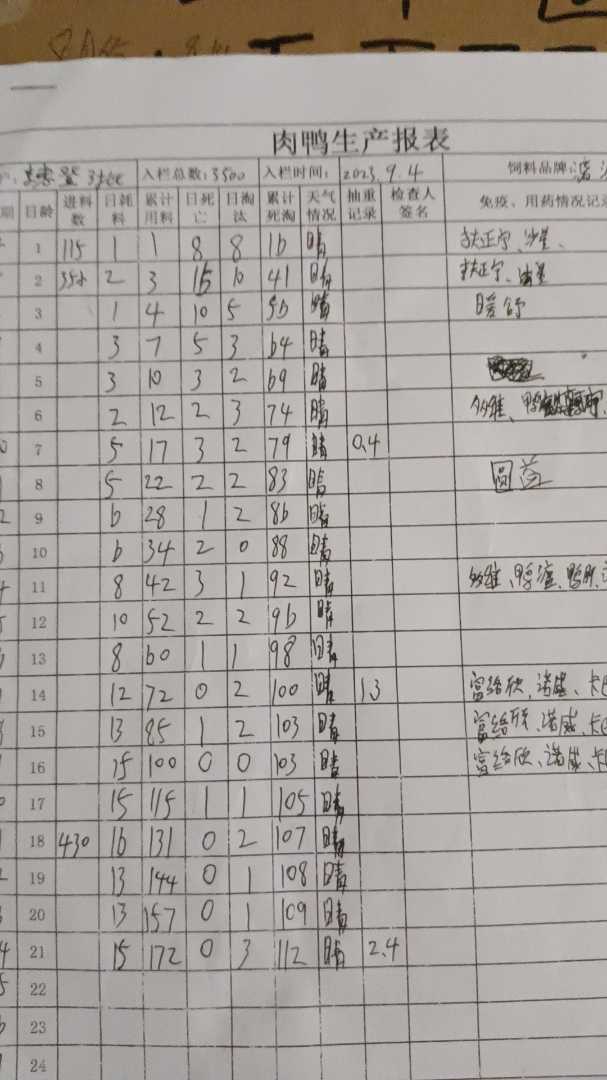 肉鸭生产报表
3500 入栏总数:3500 入栏时间: 2023.9.4 饲料品牌:
期 日龄 进料数 日耗料 累计用料 日死亡 日淘汰 累计死淘 天气情况 抽重记录 检查人签名 免疫、用药情况记录
1 115 1 1 8 8 16 晴 扶正宁、
2 2 3 15 10 41 晴 扶正宁、
3 1 4 10 5 56 晴 暖舒
4 3 7 5 3 64 晴
5 3 10 3 2 69 晴
6 2 12 2 3 74 晴 多维、
7 5 17 3 2 79 晴 0.4
8 5 22 2 2 83 晴 圆益
9 6 28 1 2 86 晴
10 6 34 2 0 88 晴
11 8 42 3 1 92 晴 多维、
12 10 52 2 2 96 晴
13 8 60 1 1 98 晴
14 12 72 0 2 100 晴 1.3 诺威、
15 13 85 1 2 103 晴 诺威、
16 15 100 0 0 103 晴 诺威、
17 15 115 1 1 105 晴
18 430 16 131 0 2 107 晴
19 13 144 0 1 108 晴
20 13 157 0 1 109 晴
21 15 172 0 3 112 晴 2.4
22
23
24